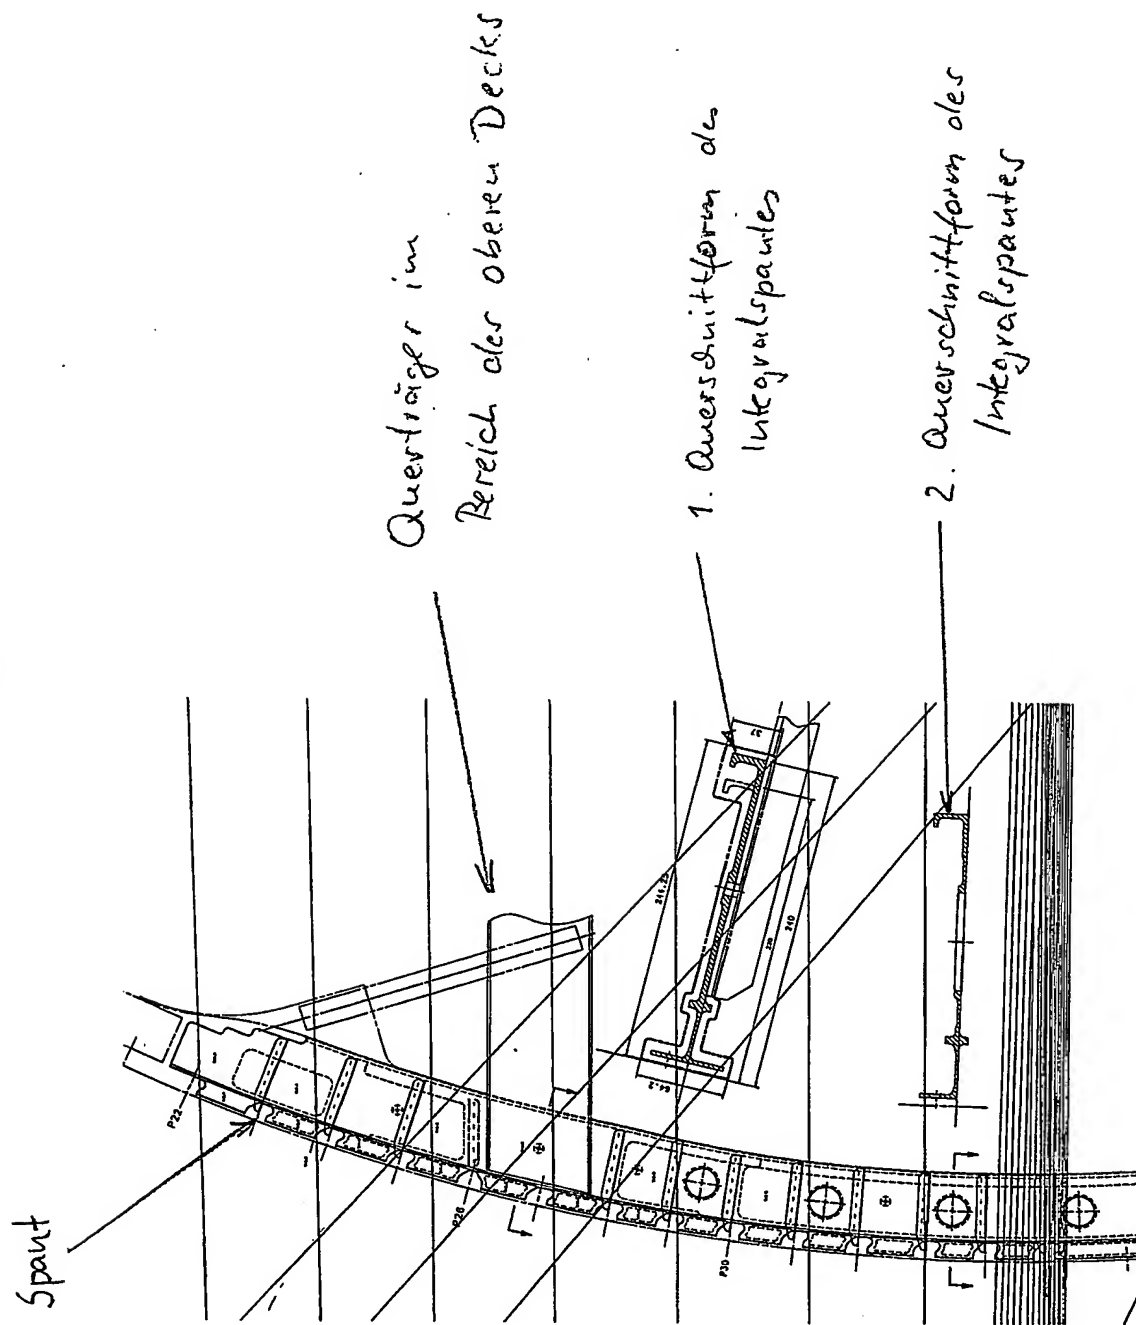 Spant
Querträger im
Bereich des oberen Decks
1. Querschnittform des
Integralspantes
2. Querschnittform des
Integralspantes
P22
P26
P30
244.25
37
64.2
220
240